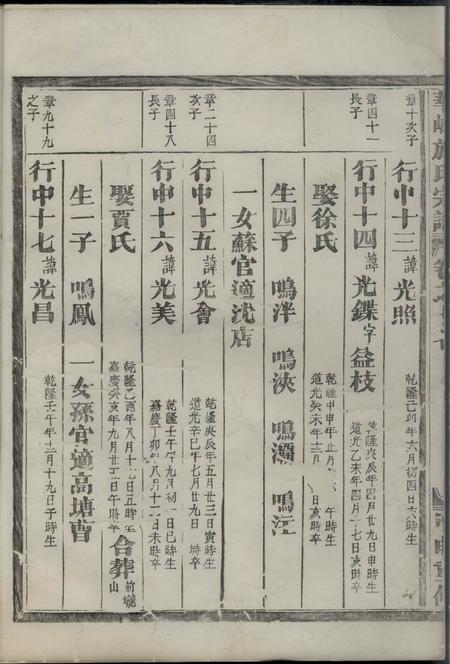 施氏宗譜
章十次子
行中十三 諱 光照
乾隆己卯年六月初四日亥時生
章四十一長子
行中十四 諱 光鏶 字 益枝
乾隆庚辰年四月廿九日申時生
道光乙未年四月十七日亥時卒
娶徐氏
乾隆甲申年正月 午時生
道光癸未年十二月 日亥時卒
生四子 鳴泮 鳴浹 鳴灝 鳴江
一女蘇官適沈店
章二十四次子
行中十五 諱 光會
乾隆庚辰年五月廿三日寅時生
道光辛巳年七月廿九日 時卒
章四十八長子
行中十六 諱 光美
乾隆壬午年九月初一日巳時生
嘉慶丁卯年八月十二日未時卒
娶賈氏
乾隆乙酉年八月十九日丑時生
嘉慶癸亥年九月廿三日午時卒
合葬 前壠山
生一子 鳴鳳 一女孫官適高塘曹
章九十九之子
行中十七 諱 光昌
乾隆壬午年十二月十九日子時生